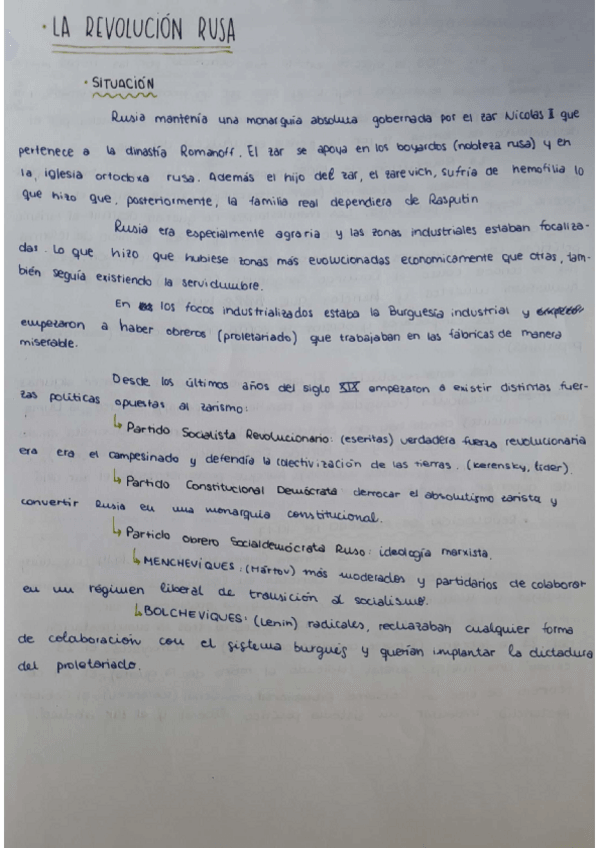 · LA REVOLUCIÓN RUSA
· SITUACIÓN
Rusia mantenía una monarquía absoluta gobernada por el zar Nicolas II que
pertenece a la dinastía Romanoff. El zar se apoya en los boyardos (nobleza rusa) y en
la iglesia ortodoxa rusa. Además el hijo del zar, el zarevich, sufría de hemofilia lo
que hizo que, posteriormente, la familia real dependiera de Rasputin
Rusia era especialmente agraria y las zonas industriales estaban focaliza-
das. Lo que hizo que hubiese zonas más evolucionadas economicamente que otras, tam-
bién seguía existiendo la servidumbre.
En los focos industrializados estaba la Burguesía industrial y
empezaron a haber obreros (proletariado) que trabajaban en las fábricas de manera
miserable.
Desde los últimos años del siglo XIX empezaron a existir distintas fuer-
zas políticas opuestas al zarismo:
↳ Partido Socialista Revolucionario: (eseritas) verdadera fuerza revolucionaria
era era el campesinado y defendía la colectivización de las tierras. (Kerensky, líder).
↳ Partido Constitucional Demócrata derrocar el absolutismo zarista y
convertir Rusia en una monarquía constitucional.
↳ Partido Obrero Socialdemócrata Ruso: ideología marxista.
↳ MENCHEVIQUES: (Mártov) más moderados y partidarios de colaborar
en un régimen liberal de transición al socialismo.
↳ BOLCHEVIQUES: (Lenin) radicales, rechazaban cualquier forma
de colaboración con el sistema burgués y querían implantar la dictadura
del proletariado.